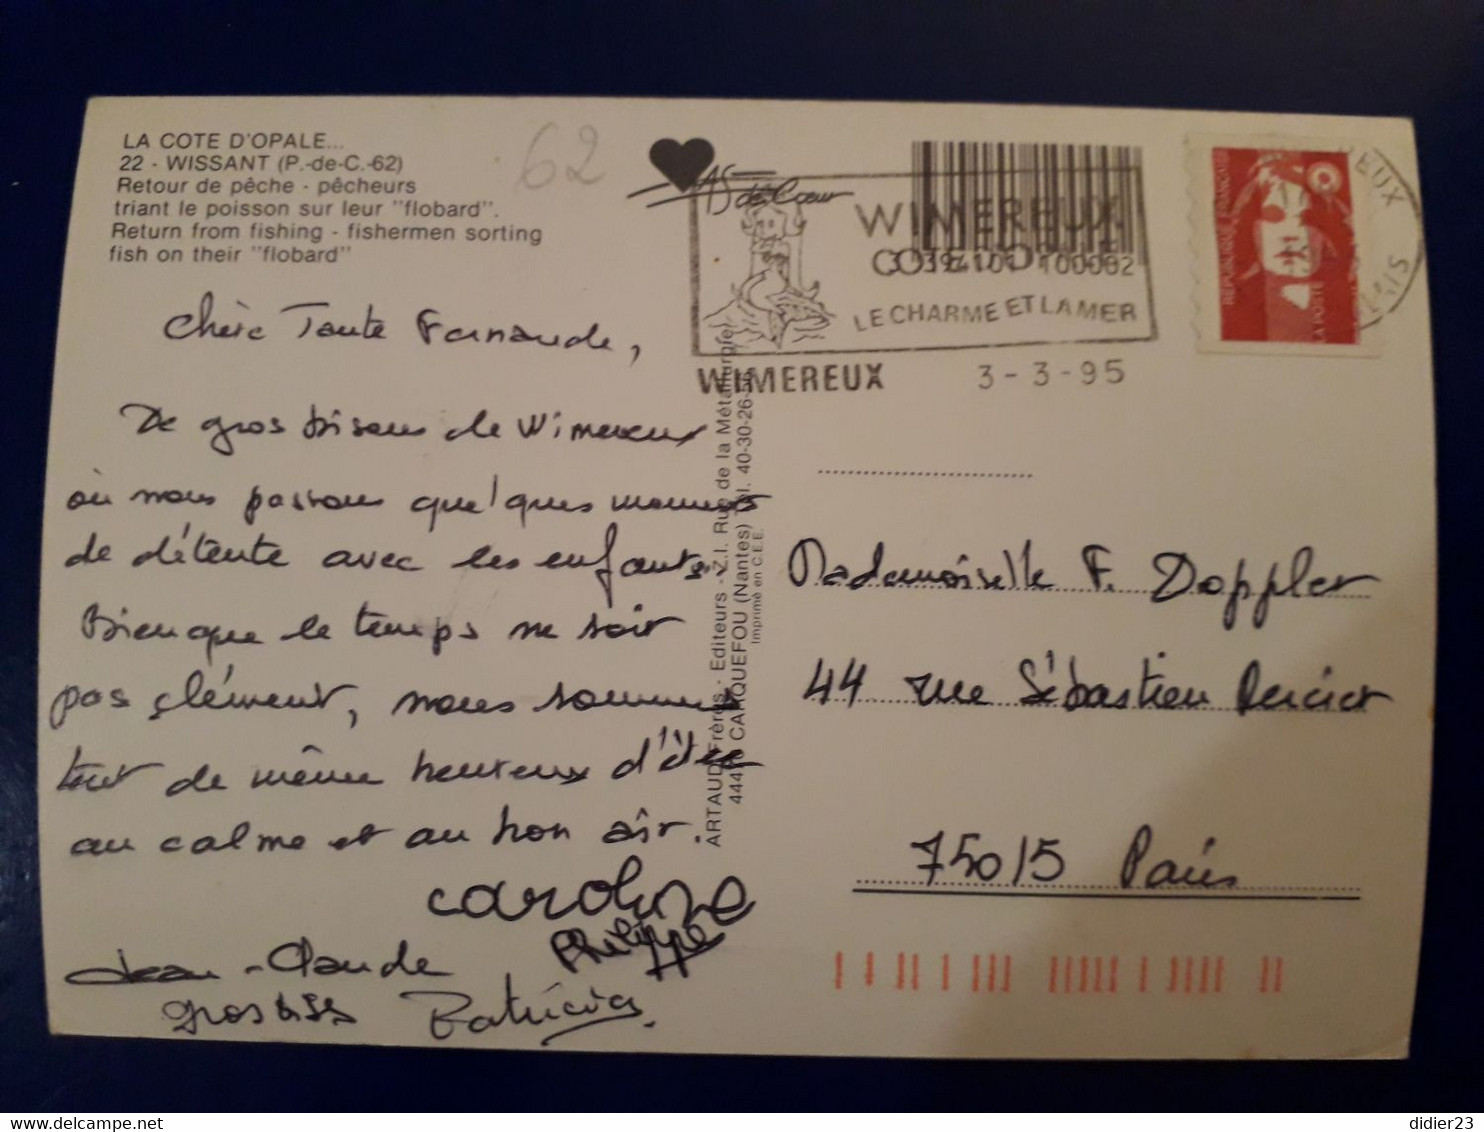 LA COTE D'OPALE...
22 - WISSANT (P.-de-C.-62)
Retour de pêche - pêcheurs
triant le poisson sur leur "flobard".
Return from fishing - fishermen sorting
fish on their "flobard"
62
AS de Cœur
WIMEREUX
COTE D'OPALE
3 394101 100002
LE CHARME ET LA MER
WIMEREUX 3-3-95
REPUBLIQUE FRANÇAISE
LA POSTE
Chère Tante Fernande,
De gros bisous de Wimereux
où nous passons quelques moments
de détente avec les enfants.
Bien que le temps ne soit
pas clément, nous sommes
tout de même heureux d'être
au calme et au bon air.
Caroline
Philippe
Jean-Claude
gros bises Patricia
ARTAUD Frères - Editeurs - Z.I. Rue de la Métallurgie
CARQUEFOU (Nantes) Tél. 40-30-26
Imprimé en C.E.E.
Mademoiselle F. Doppler
44 rue Sébastien Mercier
75015 Paris
didier23